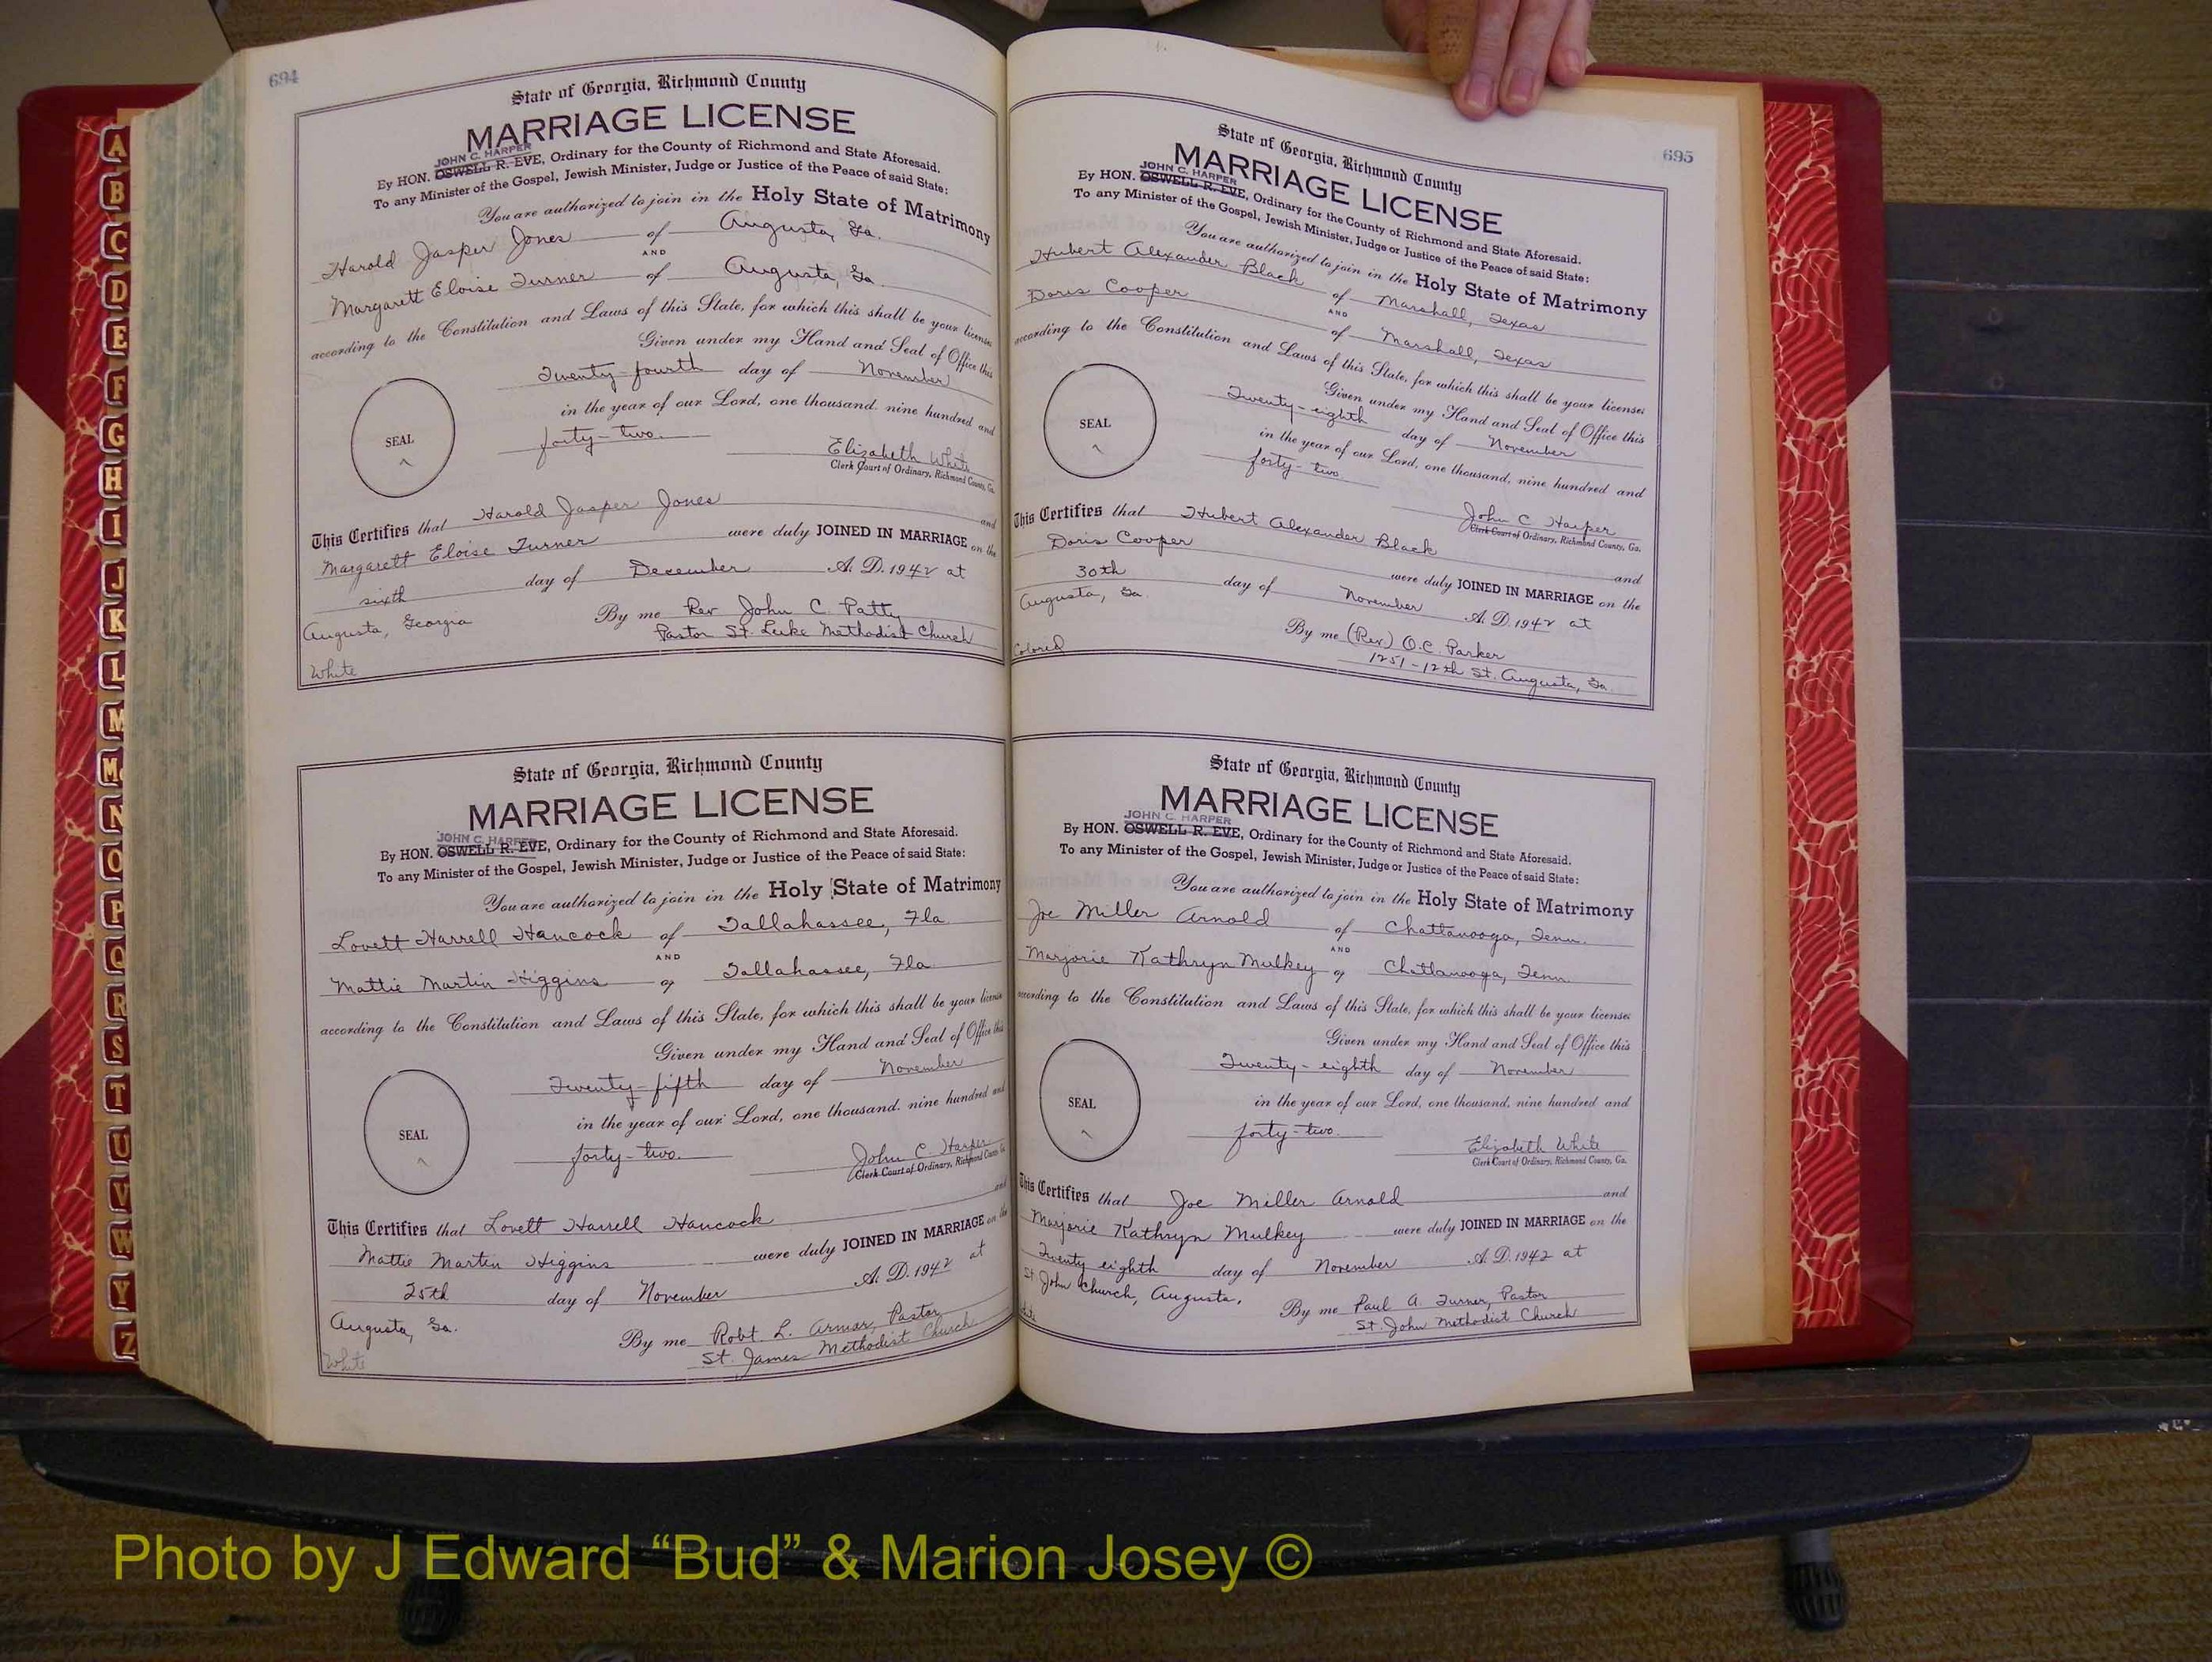 694
State of Georgia, Richmond County
MARRIAGE LICENSE
JOHN C. HARPER
By HON. OSWELL R. EVE, Ordinary for the County of Richmond and State Aforesaid.
To any Minister of the Gospel, Jewish Minister, Judge or Justice of the Peace of said State:
You are authorized to join in the Holy State of Matrimony
Harold Jasper Jones of Augusta, Ga.
AND
Margarett Eloise Turner of Augusta, Ga.
according to the Constitution and Laws of this State, for which this shall be your license
Given under my Hand and Seal of Office this
Twenty-fourth day of November
in the year of our Lord, one thousand nine hundred and
forty-two.
SEAL
Elizabeth White
Clerk Court of Ordinary, Richmond County, Ga.
This Certifies that Harold Jasper Jones and
Margarett Eloise Turner were duly JOINED IN MARRIAGE on the
sixth day of December A. D. 1942 at
Augusta, Georgia By me Rev John C. Patty
Pastor St. Luke Methodist Church
White
State of Georgia, Richmond County
MARRIAGE LICENSE
JOHN C. HARPER
By HON. OSWELL R. EVE, Ordinary for the County of Richmond and State Aforesaid.
To any Minister of the Gospel, Jewish Minister, Judge or Justice of the Peace of said State:
You are authorized to join in the Holy State of Matrimony
Lovett Harrell Hancock of Tallahassee, Fla.
AND
Mattie Martin Higgins of Tallahassee, Fla.
according to the Constitution and Laws of this State, for which this shall be your license
Given under my Hand and Seal of Office this
Twenty-fifth day of November
in the year of our Lord, one thousand. nine hundred and
forty-two
SEAL
John C. Harper
Clerk Court of Ordinary, Richmond County, Ga.
This Certifies that Lovett Harrell Hancock and
Mattie Martin Higgins were duly JOINED IN MARRIAGE on the
25th day of November A. D. 1942 at
Augusta, Ga. By me Robt. L. Armor, Pastor
St. James Methodist Church
White
695
State of Georgia, Richmond County
MARRIAGE LICENSE
JOHN C. HARPER
By HON. OSWELL R. EVE, Ordinary for the County of Richmond and State Aforesaid.
To any Minister of the Gospel, Jewish Minister, Judge or Justice of the Peace of said State:
You are authorized to join in the Holy State of Matrimony
Hubert Alexander Black of Marshall, Texas
AND
Doris Cooper of Marshall, Texas
according to the Constitution and Laws of this State, for which this shall be your license:
Given under my Hand and Seal of Office this
Twenty-eighth day of November
in the year of our Lord, one thousand, nine hundred and
forty-two
SEAL
John C Harper
Clerk Court of Ordinary, Richmond County, Ga.
This Certifies that Hubert Alexander Black and
Doris Cooper were duly JOINED IN MARRIAGE on the
30th day of November A. D. 1942 at
Augusta, Ga. By me (Rev) O.C. Parker
1251-12th St. Augusta, Ga.
Colored
State of Georgia, Richmond County
MARRIAGE LICENSE
JOHN C. HARPER
By HON. OSWELL R. EVE, Ordinary for the County of Richmond and State Aforesaid.
To any Minister of the Gospel, Jewish Minister, Judge or Justice of the Peace of said State:
You are authorized to join in the Holy State of Matrimony
Joe Miller Arnold of Chattanooga, Tenn.
AND
Marjorie Kathryn Mulkey of Chattanooga, Tenn.
according to the Constitution and Laws of this State, for which this shall be your license:
Given under my Hand and Seal of Office this
Twenty-eighth day of November
in the year of our Lord, one thousand, nine hundred and
forty-two.
SEAL
Elizabeth White
Clerk Court of Ordinary, Richmond County, Ga.
This Certifies that Joe Miller Arnold and
Marjorie Kathryn Mulkey were duly JOINED IN MARRIAGE on the
Twenty eighth day of November A. D. 1942 at
St John Church, Augusta. By me Paul A. Turner, Pastor
St. John Methodist Church
A
B
C
D
E
F
G
H
I
J
K
L
M
Mc
N
O
P
Q
R
S
T
U
V
W
Y
Z
Photo by J Edward “Bud” & Marion Josey ©